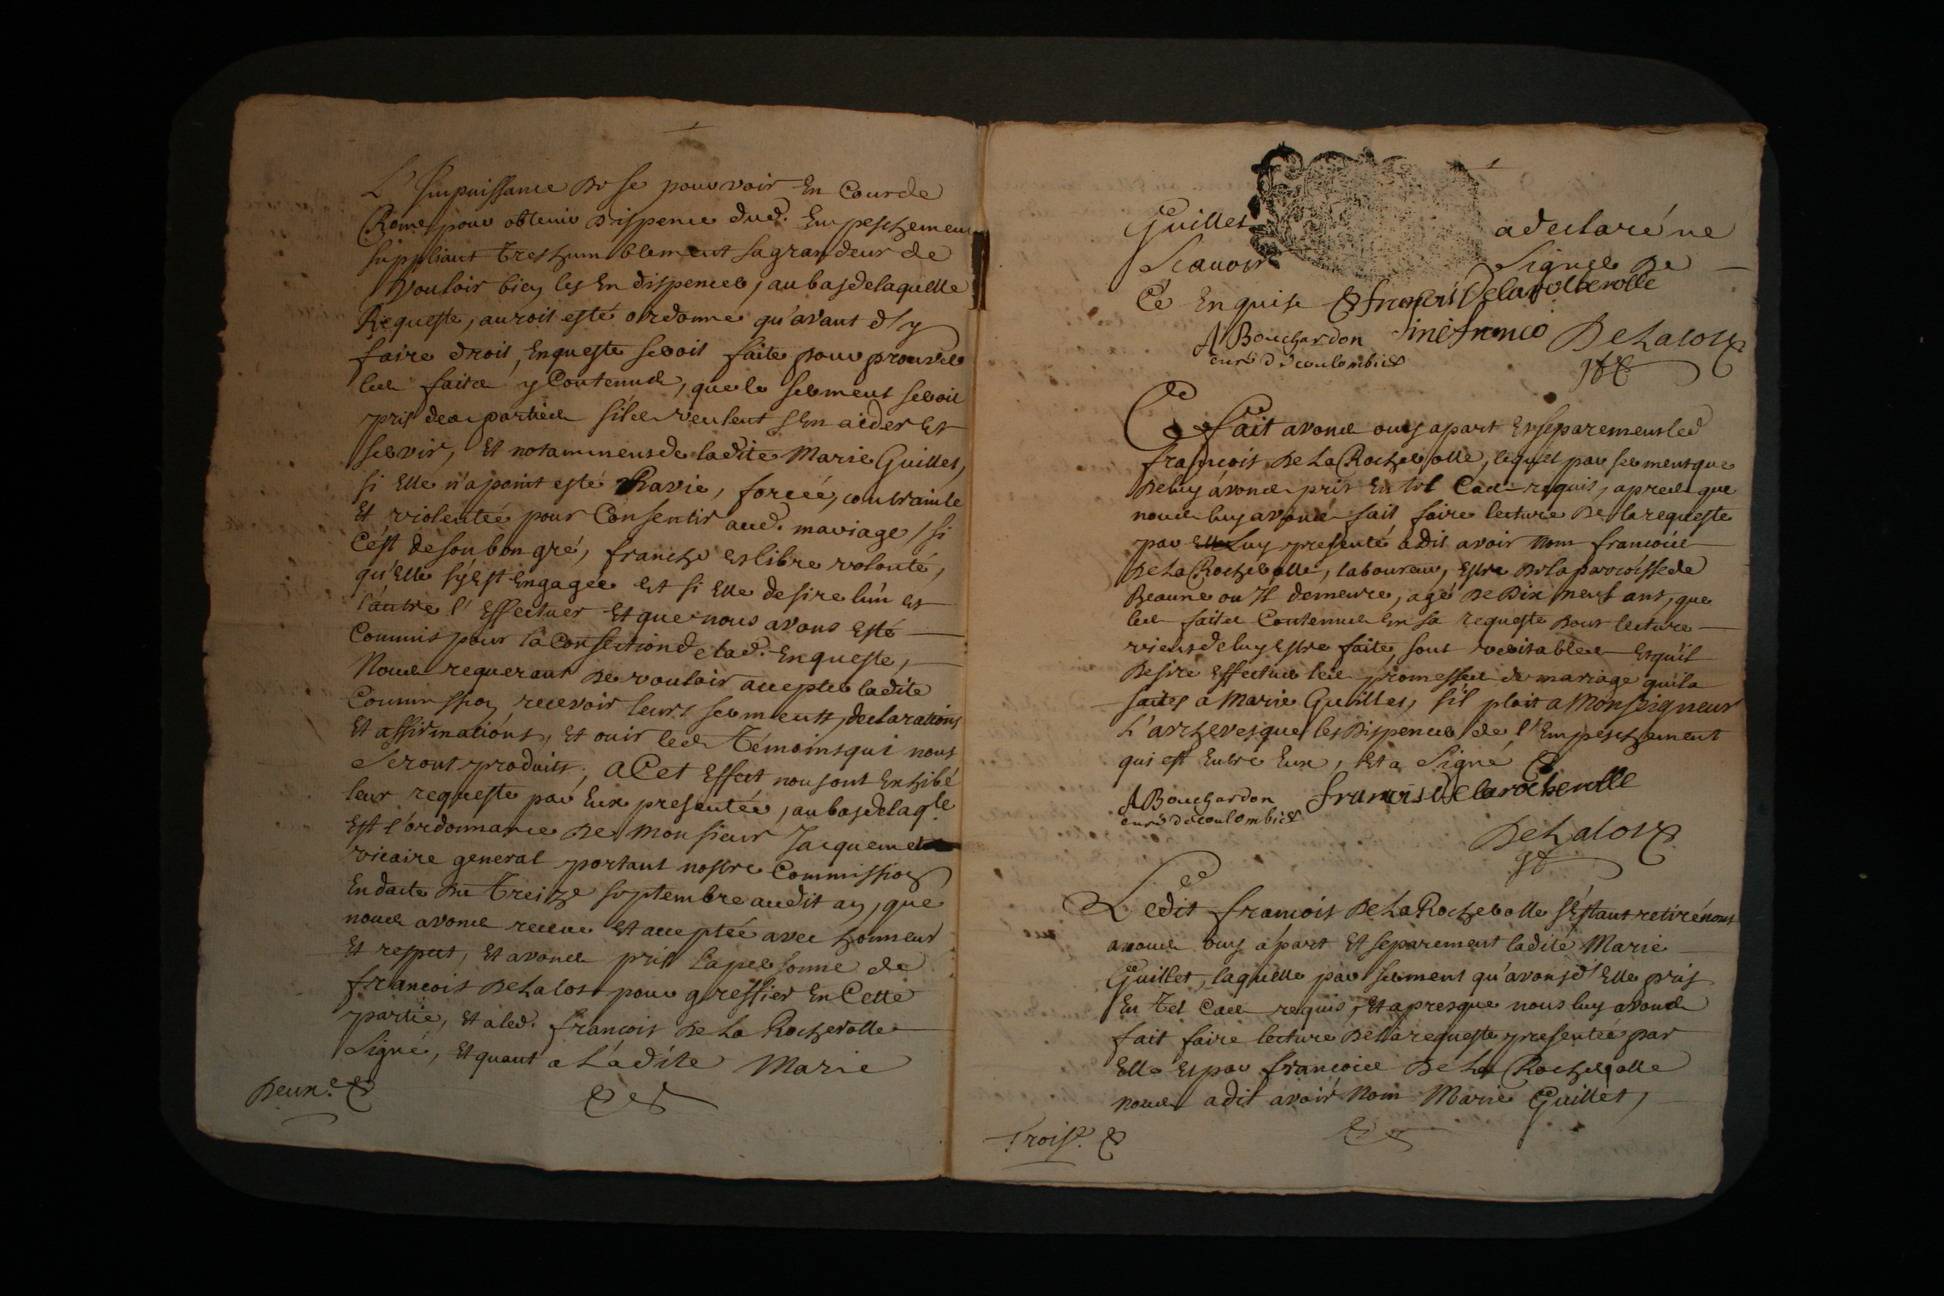 L'Impuissance de se pouvoir En Cour de
Rome pour obtenir dispence dud. Empeschement
suppliant tres humblement sa grandeur de
vouloir bien les En dispencer, au bas de laquelle
Requeste, auroit esté ordonné qu'avant d'y
faire droit, Enqueste seroit faite pour prouver
les faits y Contenus, que le serment seroit
pris des parties sils veulent s'En aider Et
servir, Et notamment de ladite Marie Guillet,
si Elle n'a point esté Ravie, forcée, contrainte
Et violentée pour Consentir aud. mariage, si
C'est de son bon gré, franche Et libre volonté,
qu'Elle s'y Est Engagée Et si Elle desire l'un Et
l'autre l'Effectuer Et que nous avons Esté
Commis pour la Confection de lad. Enqueste,
Nous requerant de vouloir accepter ladite
Commission, recevoir leurs serments, declarations
Et affirmations, Et ouir les temoins qui nous
seront produits, a Cet Effect nous ont Exhibé
leur requeste par Eux presentée, au bas de laqle.
Est l'ordonnance de Monsieur Jacquemet
vicaire general portant nostre Commission
En datte du treize septembre audit an, que
nous avons receue Et acceptée avec honneur
Et respect, Et avons pris la personne de
francois Delalos pour greffier En Cette
partie, Et a led. francois De La Rocherolle
Signé, Et quant a Ladite Marie
Deuxe.
Guillet a declaré ne
Scavoir Signer de
Ce Enquise & francois Delarocherolle
A Bouchardon
curé de coulombier
Delalos
Ce Fait avons ouy a part Et separement led
francois De La Rocherolle, lequel par serment que
de luy avons pris En tel Cas requis, apres que
nous luy avons fait faire lecture de la requeste
par Luy presenté a dit avoir Nom francois
De La Rocherolle, laboureur, Estre de la parroisse de
Beaune ou Il demeure, agé de Dix neuf ans, que
les faits Contenus En sa requeste dont lecture
vient de luy Estre faite, sont veritables Et qu'il
desire Effectuer les promesses de mariage qu'il a
faites a Marie Guillet, s'il plait a Monseigneur
L'archevesque les dispencer de l'Empeschement
qui est Entre Eux, Et a Signé
A Bouchardon francois Delarocherolle
curé de coulombier
Delalos
Ledit francois De La Rocherolle s'Estant retiré nous
avons ouy a part Et separement ladite Marie
Guillet, laquelle par serment qu'avons d'Elle pris
En tel Cas requis, Et apres que nous luy avons
fait faire lecture de la requeste presentée par
Elle Et par francois De La Rocherolle
nous a dit avoir Nom Marie Guillet,
Troise.